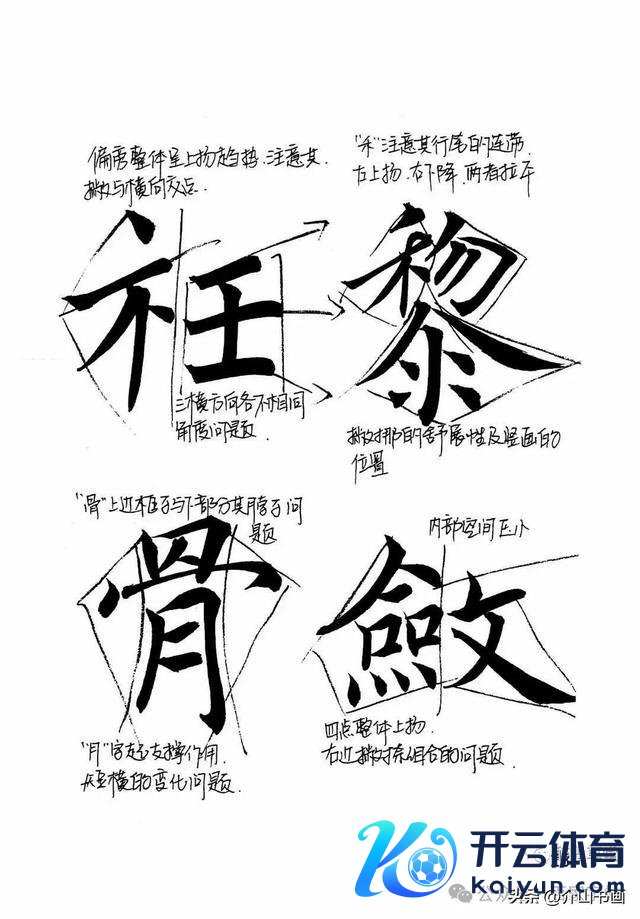 偏旁整体呈上扬趋势.注意其
撇与横的交点.
"禾"注意其行笔的连带.
左上扬.右下降.两者拉平
衽
黎
三横方向各不相同
角度问题.
撇捺的舒展性及竖画的
位置
"骨"上边框与下部分其脖子问
题
内部空间压小
骨
斂
"月"字起支撑作用.
短横的变化问题.
四点整体上扬.
右边撇捺组合的问题.
开云体育
kaiyun.com
头条@介山书画